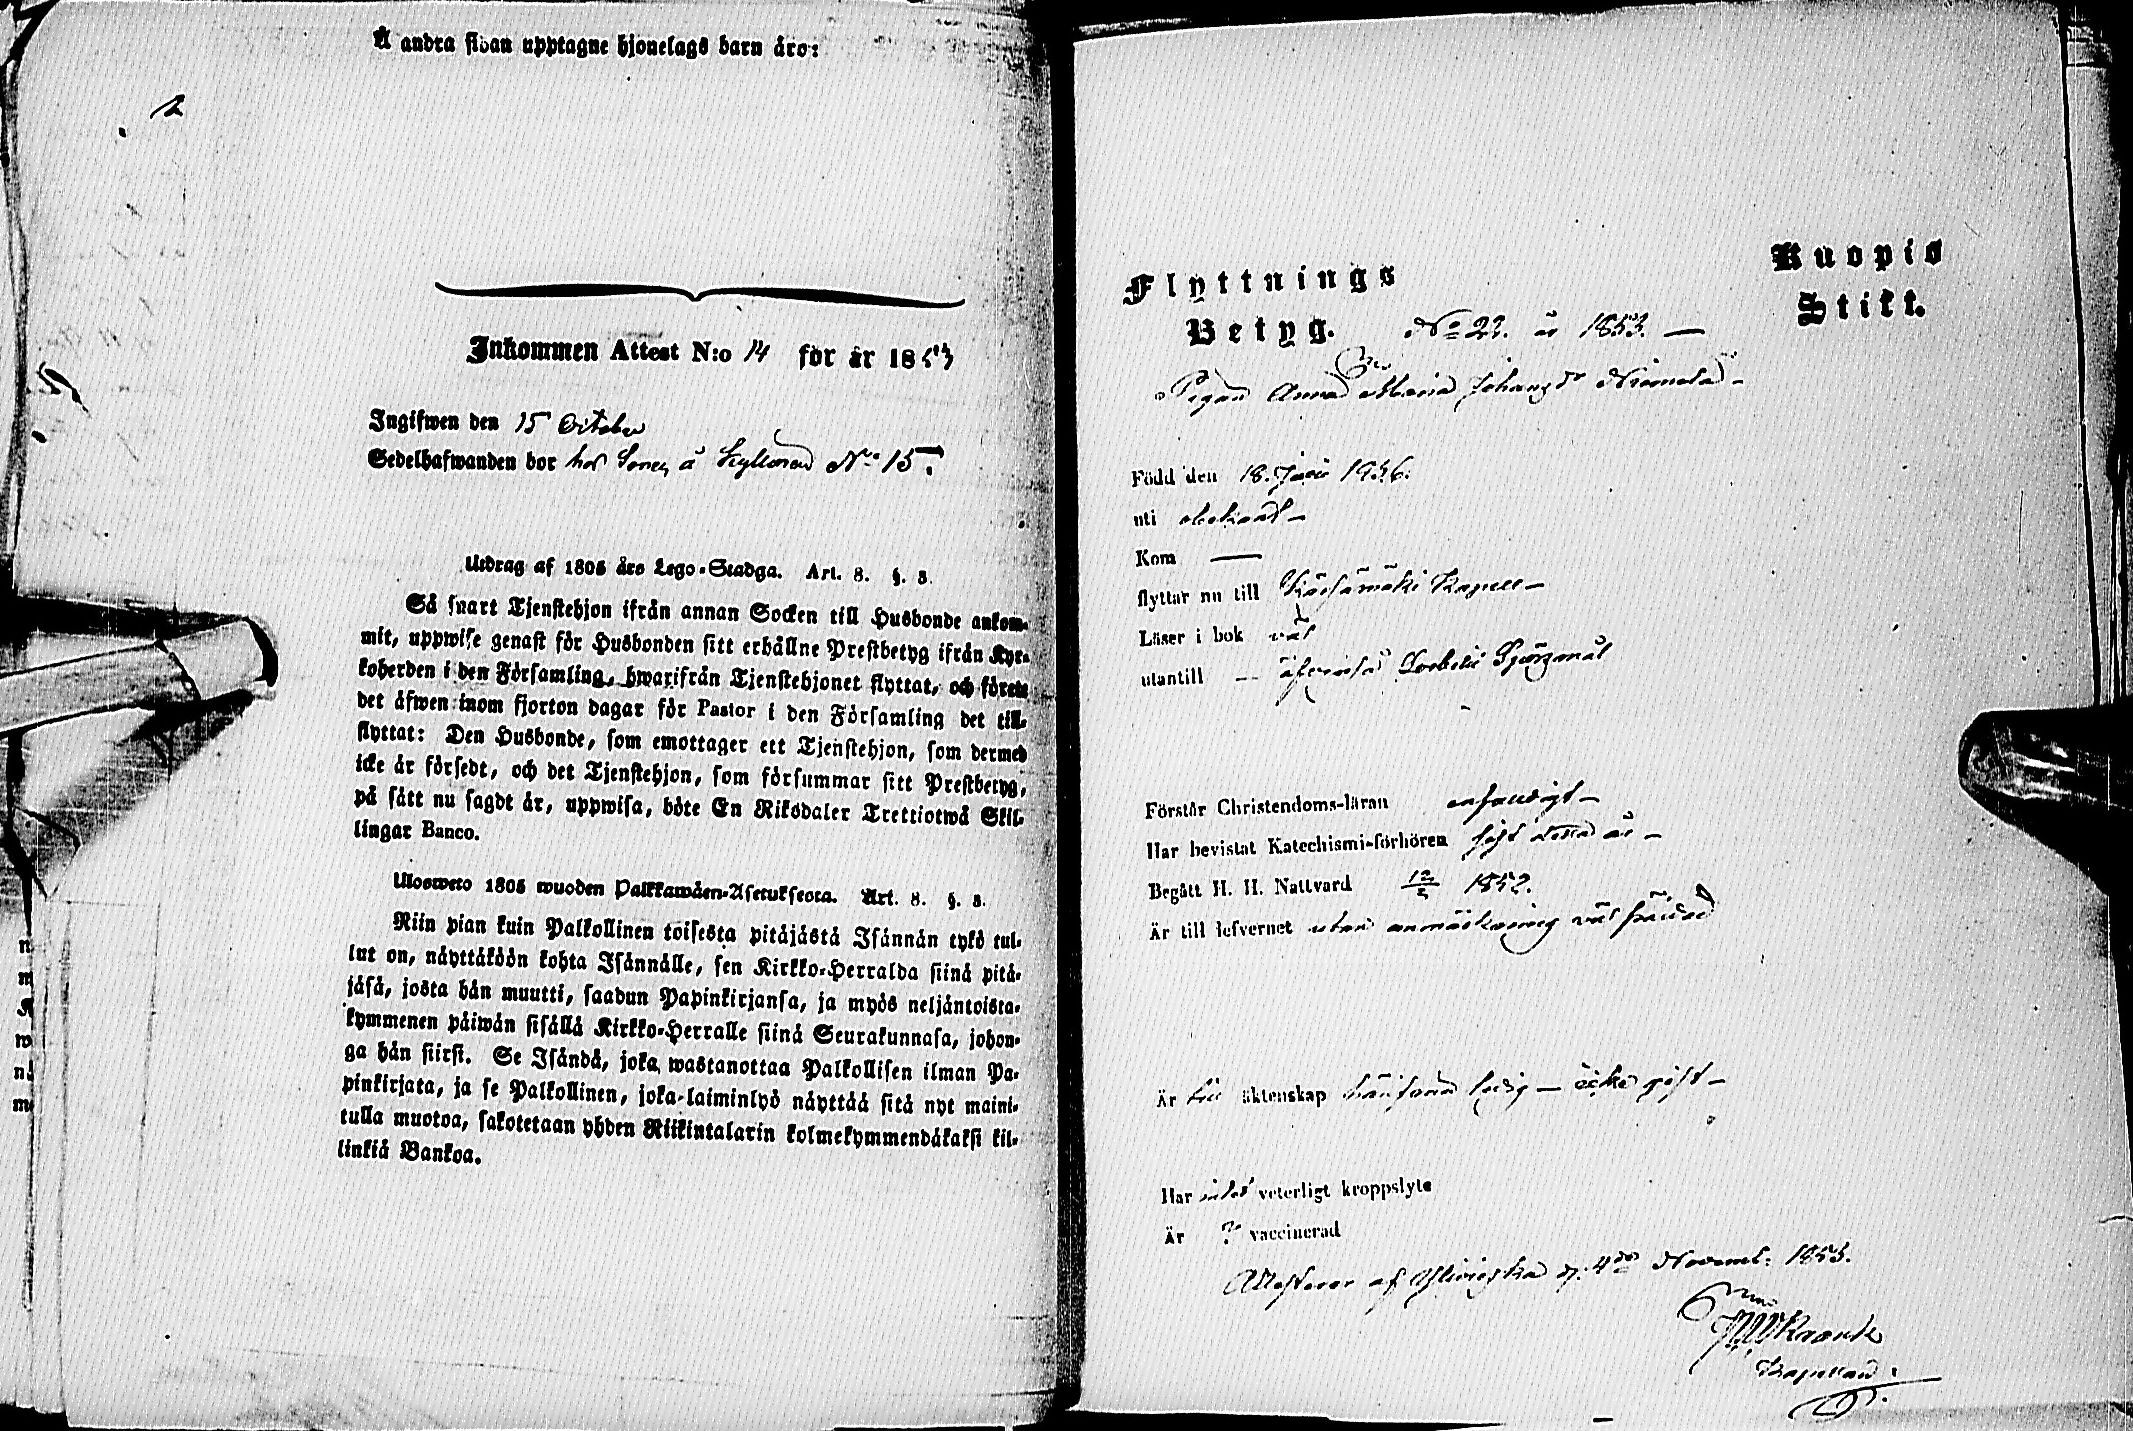 Å andra sidan upptagne hjonelags barn äro:
2
Inkommen Attest N:o 14 för år 1853
Ingifwen den 15 October
Sedelhafwanden bor hos å N:o 15.
Utdrag af 1805 års Lego-Stadga. Art. 8. §. 3.
Så snart Tjenstehjon ifrån annan Socken till Husbonde ankom-
mit, uppwise genast för Husbonden sitt erhållne Prestbetyg ifrån Kyr-
koherden i den Församling, hwarifrån Tjenstehjonet flyttat, och förete
det äfwen inom fjorton dagar för Pastor i den Församling det till-
flyttat: Den Husbonde, som emottager ett Tjenstehjon, som dermed
icke är försedt, och det Tjenstehjon, som försummar sitt Prestbetyg,
på sätt nu sagdt är, uppwisa, böte En Riksdaler Trettiotwå Skil-
lingar Banco.
Ulosweto 1805 wuoden Palkkawäen-Asetuksesta. Art. 8. §. 3.
Niin pian kuin Palkollinen toisesta pitäjästä Isännän tykö tul-
lut on, näyttäköön kohta Isännälle, sen Kirkko-Herralda siinä pitä-
jäsä, josta hän muutti, saadun Papinkirjansa, ja myös neljäntoista-
kymmenen päiwän sisällä Kirkko-Herralle siinä Seurakunnasa, johon-
ga hän siirsi. Se Isändä, joka wastanottaa Palkollisen ilman Pa-
pinkirjata, ja se Palkollinen, joka laiminlyö näyttää sitä nyt maini-
tulla muotoa, sakotetaan yhden Riikintalarin kolmekymmendäkaksi kil-
linkiä Bankoa.
Kuopio
Stift.
Flyttnings
Betyg. No 22. år 1853. —
Pigan Anna Maria Johansdr Niemelä –
Född den 18. 1836.
uti
Kom —
flyttar nu till Kärsämäki Kapell –
Läser i bok väl
utantill — Spörsmål
Förstår Christendoms-läran enfaldigt –
Har bevistat Katechismi-förhören sist detta år –
Begått H. H. Nattvard 1852.
Är till lefvernet utan anmärkning väl fräjdad
Är till äktenskap ledig – icke gift –
Har intet veterligt kroppslyte
Är ? vaccinerad
Attesterar af Ylivieska d. 4de Novemb. 1853.
Kapellan.